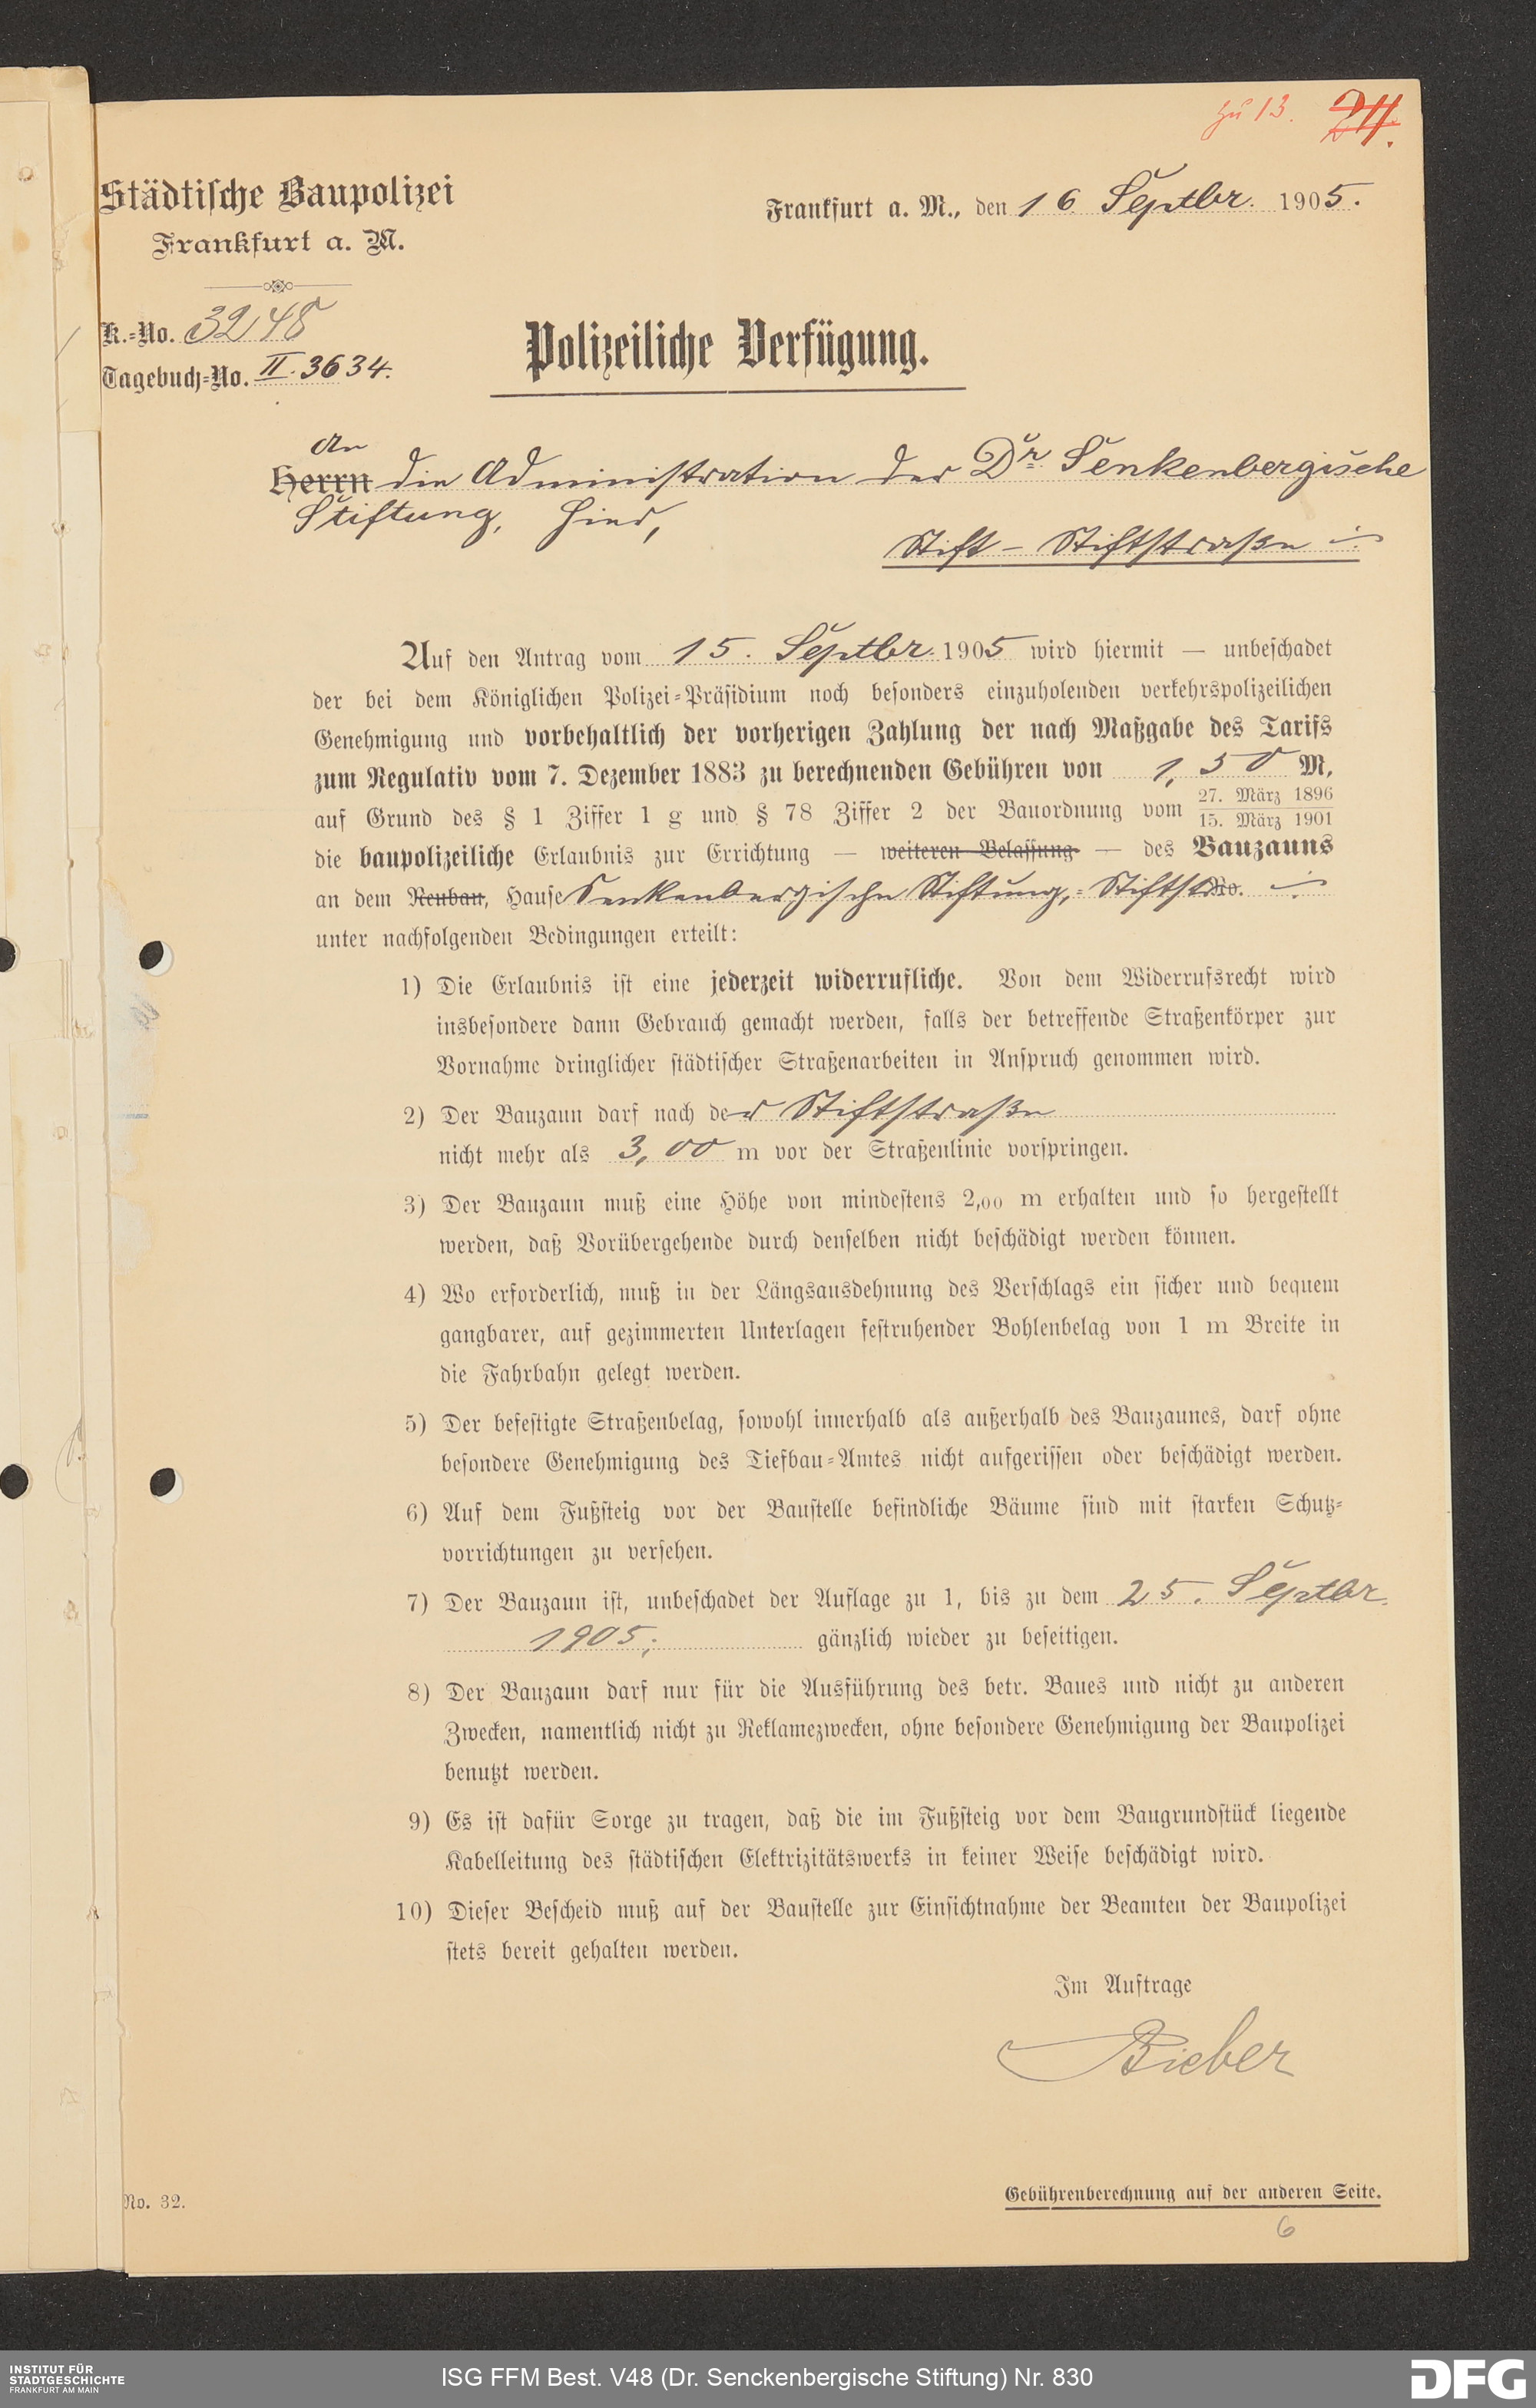 zu 13. 24.
Städtische Baupolizei
Frankfurt a. M.
Frankfurt a. M., den 16. Septbr. 1905.
K.-No. 3248
Tagebuch-No. II. 3634.
Polizeiliche Verfügung.
An
Herrn die Administration der Dr. Senkenbergische
Stiftung, Hier,
Stift - Stiftstraße
Auf den Antrag vom 15. Septbr. 1905 wird hiermit — unbeschadet
der bei dem Königlichen Polizei-Präsidium noch besonders einzuholenden verkehrspolizeilichen
Genehmigung und vorbehaltlich der vorherigen Zahlung der nach Maßgabe des Tarifs
zum Regulativ vom 7. Dezember 1883 zu berechnenden Gebühren von 1,50 M,
auf Grund des § 1 Ziffer 1 g und § 78 Ziffer 2 der Bauordnung vom 27. März 1896
15. März 1901
die baupolizeiliche Erlaubnis zur Errichtung — weiteren Belassung — des Bauzauns
an dem Neubau, Hause Senkenbergische Stiftung,- Stiftstr. No.
unter nachfolgenden Bedingungen erteilt:
1) Die Erlaubnis ist eine jederzeit widerrufliche. Von dem Widerrufsrecht wird
insbesondere dann Gebrauch gemacht werden, falls der betreffende Straßenkörper zur
Vornahme dringlicher städtischer Straßenarbeiten in Anspruch genommen wird.
2) Der Bauzaun darf nach der Stiftstraße
nicht mehr als 3,00 m vor der Straßenlinie vorspringen.
3) Der Bauzaun muß eine Höhe von mindestens 2,00 m erhalten und so hergestellt
werden, daß Vorübergehende durch denselben nicht beschädigt werden können.
4) Wo erforderlich, muß in der Längsausdehnung des Verschlags ein sicher und bequem
gangbarer, auf gezimmerten Unterlagen festruhender Bohlenbelag von 1 m Breite in
die Fahrbahn gelegt werden.
5) Der befestigte Straßenbelag, sowohl innerhalb als außerhalb des Bauzaunes, darf ohne
besondere Genehmigung des Tiefbau-Amtes nicht aufgerissen oder beschädigt werden.
6) Auf dem Fußsteig vor der Baustelle befindliche Bäume sind mit starken Schutz-
vorrichtungen zu versehen.
7) Der Bauzaun ist, unbeschadet der Auflage zu 1, bis zu dem 25. Septbr.
1905, gänzlich wieder zu beseitigen.
8) Der Bauzaun darf nur für die Ausführung des betr. Baues und nicht zu anderen
Zwecken, namentlich nicht zu Reklamezwecken, ohne besondere Genehmigung der Baupolizei
benutzt werden.
9) Es ist dafür Sorge zu tragen, daß die im Fußsteig vor dem Baugrundstück liegende
Kabelleitung des städtischen Elektrizitätswerks in keiner Weise beschädigt wird.
10) Dieser Bescheid muß auf der Baustelle zur Einsichtnahme der Beamten der Baupolizei
stets bereit gehalten werden.
Im Auftrage
Bieber
No. 32.
Gebührenberechnung auf der anderen Seite.
6
INSTITUT FÜR
STADTGESCHICHTE
FRANKFURT AM MAIN
ISG FFM Best. V48 (Dr. Senckenbergische Stiftung) Nr. 830
DFG